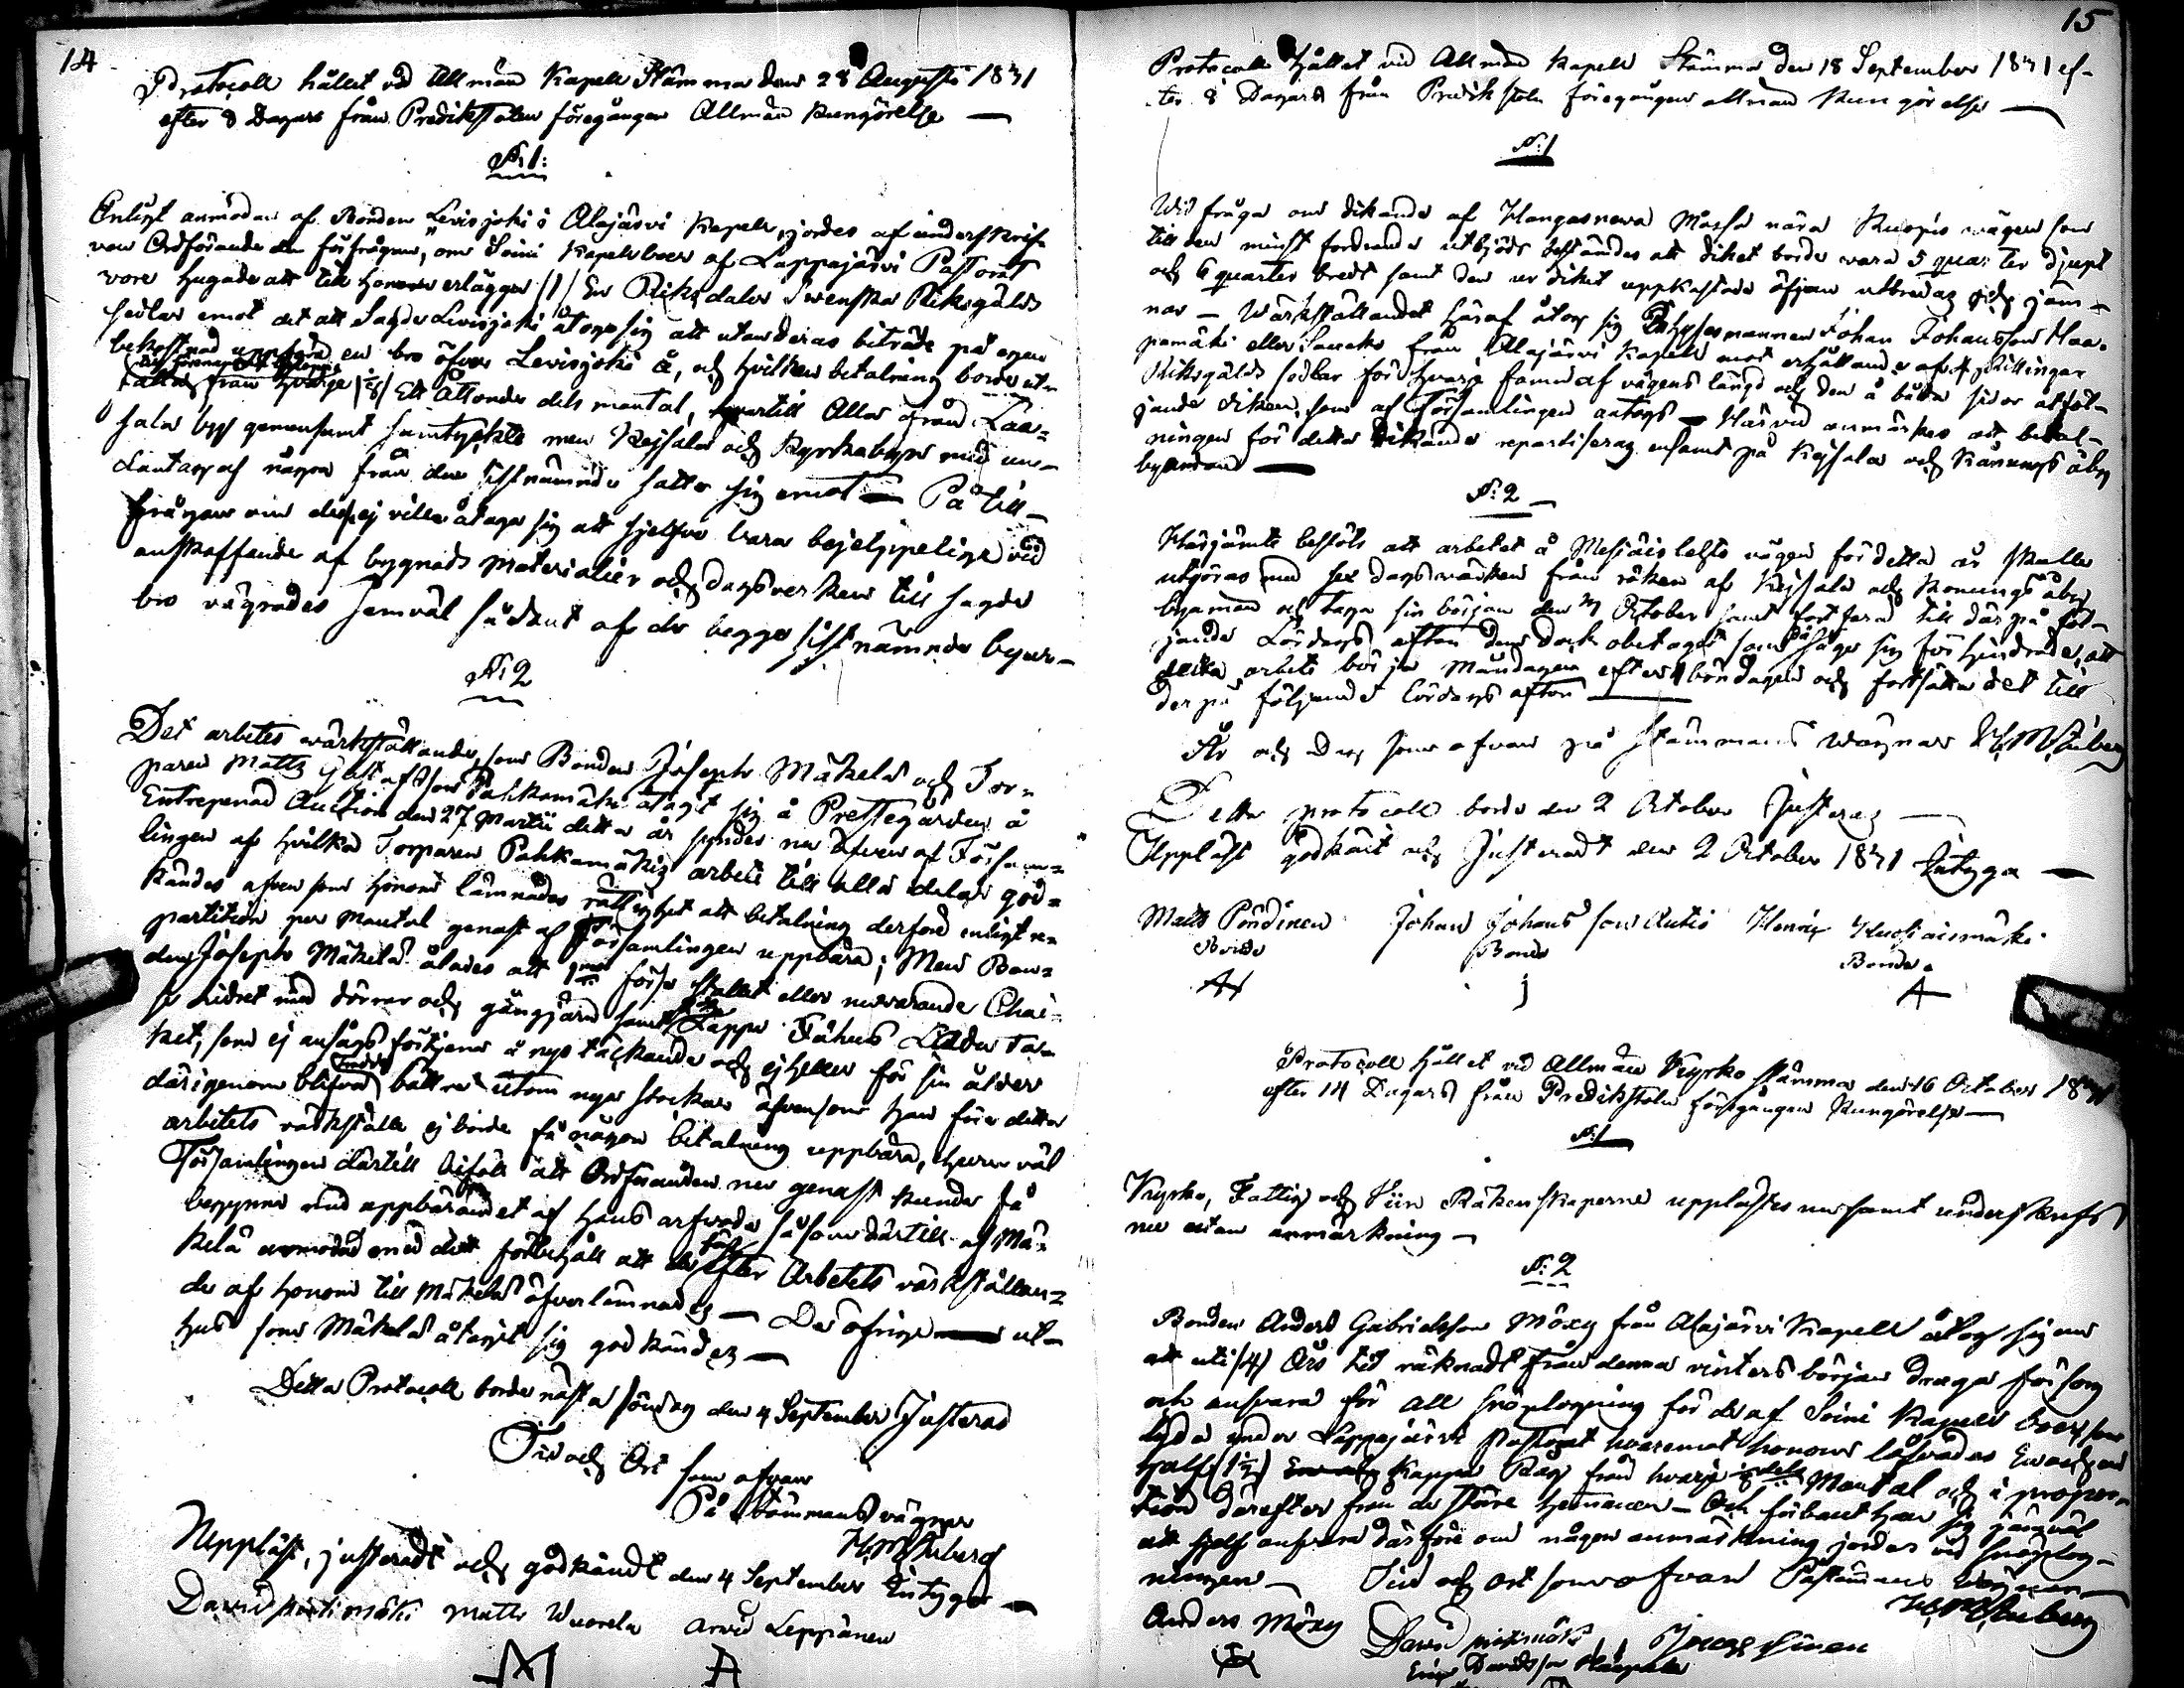 14
Protocoll hållet vid Allmän Kapell Stämma den 28 Augusti 1831
efter 8 Dagars från Predikstolen föregången Allmän kungörelse —
N:1:
Enligt anmodan af Bonden Levisjoki i Alajärvi Kapell, gjordes af underskrif-
ven Ordförande den förfrågan, om Soini Kapellboer af Lappajärvi Pastorat
vore hugade att till honom erlägga /1/ En Riksdaler Svenska Riksgälds
sedlar emot det att Sagde Levisjoki åtoge sig att utan deras biträde på egen
bekostnad uppföra en bro öfver Levisjoki å, och hvilken betalning borde ut-
från hvarje /⅛/ Ett Åttondedels mantal, hvartill Alla från Laa-
sala by gemensamt samtyckte men Keisala och Kyrkobyn med un-
dantag af några från den sistnämnde satte sig emot — På till-
frågan om desse ej ville åtaga sig att sjelfve vara behjelpelige vid
anskaffande af bygnads materialier och dagsverken till sagde
bro vägrades jemväl sådant af de begge sistnämnde byar —
N:2
Det arbetes värkställande, som Bonden Joseph Mäkelä och Tor-
paren Matts Gustafsson Pahkamäki åtagit sig å Prestegården å
Entrepenad Auction den 27 Martii detta år syndes nu äfven af Försam-
lingen af hvilka Torparen Pahkamäkis arbete till alla delar god-
kändes äfven som honom lämnades rättighet att betalning derföre enligt re-
partition per Mantal genast af Församlingen uppbära; Men Bon-
den Joseph Mäkelä ålades att förse stallet eller nuvarande Chai-
se Lidret med dörrar och gångjärn samt Fähus Ladu ta-
ket, som ej ansågs förtjena å nyo täckande och ej heller för sin ålder
därigenom blifva bättre utom nya stockar äfvensom han före detta
arbetets värkställe ej borde få någon betalning uppbära, hurru väl
Församlingen därtill biföll att Ordföranden nu genast kunde få
begynna med uppbärandet af hans arfvode såsom därtill af Mä-
kelä anmodad med dett förbehåll att det efter Arbetets värkställan-
de af honom till Mäkelä öfverlämnades — De öfrige ut-
hus som Mäkelä åtagit sig godkändes —
Detta Protocoll borde nästa söndag den 4 September Justeras
Tid och Ort som ofvan
På Stämmans vägnar
Uppläst, justeradt och godkändt den 4 September Intyga —
David Matts Wuorela Arvid Leppänen
15
Protocoll Hållet vid Allmän Kapell Stämma den 18 September 1831 ef-
ter 8 Dagars från Predikstolen föregången allmän Kungörelse —
N:1
Wid fråga om dikande af Hangasneva Mossa nära Kuopio vägen som
till den minst fordrande utbjöds bestämdes att diket borde vara 5 quarter djupt
och 6 quarter bredt samt den ur diket uppkastade äfjan utbredas och jäm-
nas — Wärkställandet häraf åtog sig Inhysesmannen Johan Johansson Haa-
pamäki eller Saneko från Alajärvi Kapell mot erhållande af 4 skillingar
Riksgälds sedlar för hvarje famn af vägens längd och den å båda sidor åtföl-
jande diken, som af Församlingen antogs — Härvid anmärktes att betal-
ningen för detta dikande repartiseras ensamt på Keisala och Könings åby
byamän —
N:2
Härjämte beslöts att arbetet å vägen för detta år skulle
utgöras med sex dagsvärken från röken af Keisala och Konungs åby
byamän och taga sin början den October samt fortfara till därpå föl-
jande Lördags afton dem dock obetaget som såge sig förhindrade, att
detta arbete börja Måndagen efter bönedagen och fortsätta det till
derpå följande Lördags afton —
År och Dag som ofvan på Stämmans wägnar
Detta protocoll borde den 2 October Justeras —
Uppläst godkänt och Justeradt den 2 October 1831 Intyga —
Matts Pöndinen Johan Johansson Autio Henric Kuoliaismäki
Bonde Bonde Bonde
Protocoll Hållet vid Allmän Kyrko stämma den 16 October 1831
efter 14 Dagars från Predikstolen föregången Kungörelse —
N:1
Kyrko, Fattig och Viin Räkenskaperne upplästes nu samt underskrefs
nu utan anmärkning —
N:2
Bonden Anders Gabrielsson Möxy från Alajärvi Kapell åtog sig nu
att uti /4/ Års tid räknadt från denna vinters början draga försorg
och ansvara för all snöplogning för de af Soini Kapell boer, som
lyda under Lappajärvi Pastorat hvaremot honom låfvades En och en
half (1½) Kappa Råg från hvarje ⅛dels Mantal och i propor-
tion därefter från de större hemman — Och förbant han sig jämväl
att sjelf ansvara därföre om någon anmärkning gjordes vid snöplog-
ningen — Tid och ort som ofvan På stämmans wägnar —
Anders Möxy David